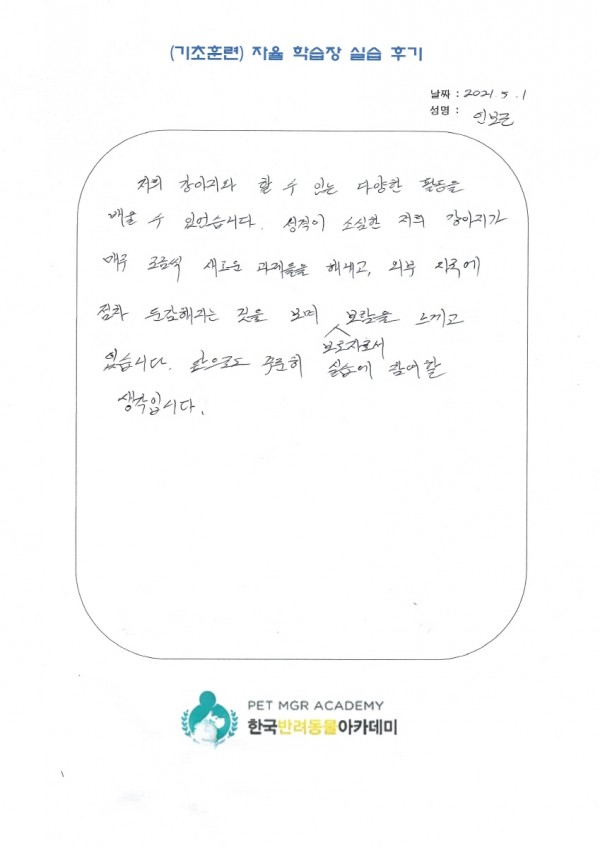 (기초훈련) 자율 학습장 실습 후기
날짜 : 2021. 5. 1
성명 : 인보근
저의 강아지와 할 수 있는 다양한 활동을
배울 수 있었습니다. 성격이 소심한 저의 강아지가
매주 조금씩 새로운 과제들을 해내고, 외부 자극에
점차 둔감해지는 것을 보며 보람을 느끼고
보호자로서
있습니다. 앞으로도 꾸준히 실습에 참여할
생각입니다.
PET MGR ACADEMY
한국반려동물아카데미